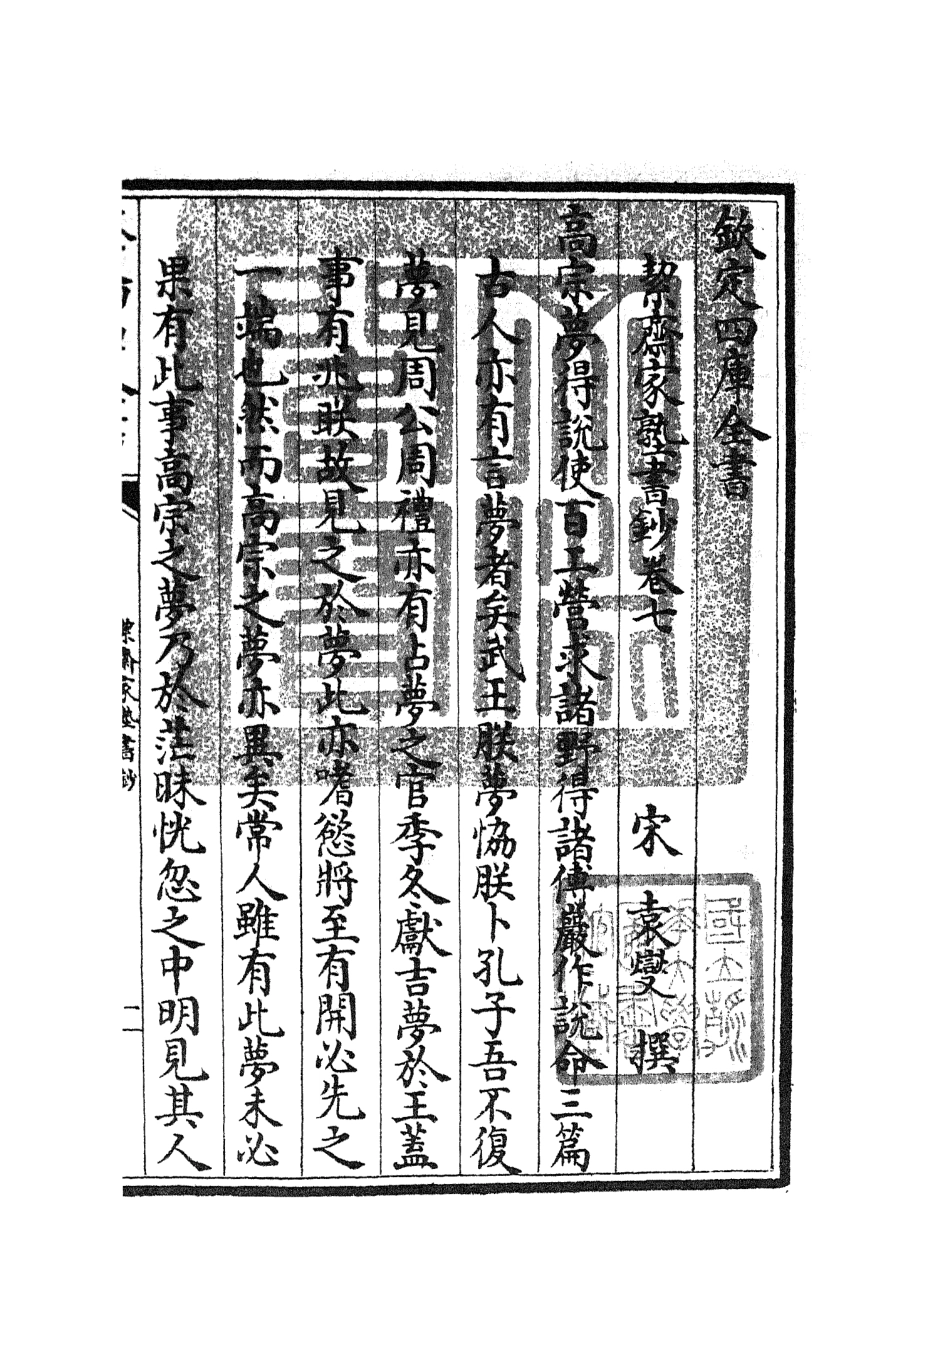 欽定四庫全書
絜齋家塾書鈔卷七
宋 袁燮 撰
高宗夢得說使百工營求諸野得諸傅巖作說命三篇
古人亦有言夢者矣武王朕夢協朕卜孔子吾不復
夢見周公周禮亦有占夢之官季冬獻吉夢於王蓋
事有兆眹故見之於夢此亦嗜慾將至有開必先之
一端也然而高宗之夢亦異矣常人雖有此夢未必
果有此事高宗之夢乃於茫昧恍忽之中明見其人
絜齋家塾書鈔
一